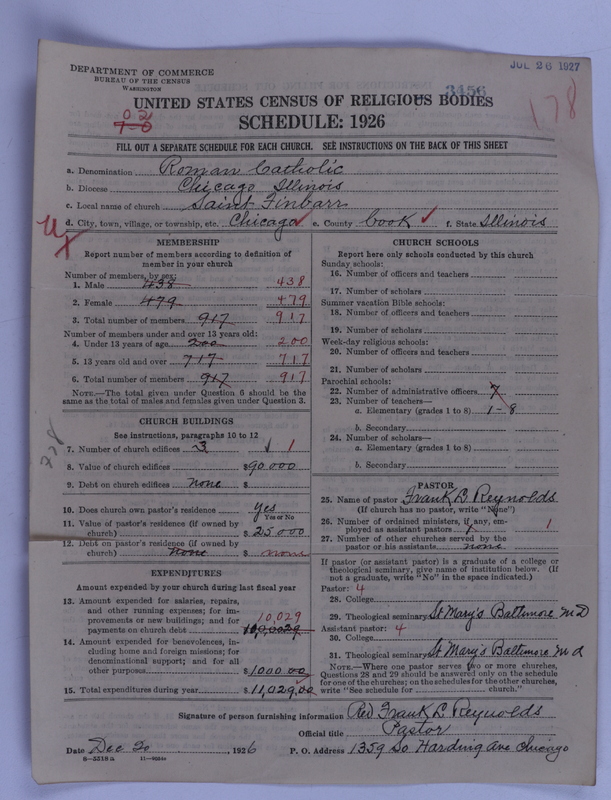 DEPARTMENT OF COMMERCE
BUREAU OF THE CENSUS
WASHINGTON
JUL 26 1927
3456
178
UNITED STATES CENSUS OF RELIGIOUS BODIES
SCHEDULE: 1926
FILL OUT A SEPARATE SCHEDULE FOR EACH CHURCH. SEE INSTRUCTIONS ON THE BACK OF THIS SHEET
a. Denomination Roman Catholic
b. Diocese Chicago Illinois
c. Local name of church Saint Finbarr
d. City, town, village, or township, etc. Chicago e. County Cook f. State Illinois
MEMBERSHIP
Report number of members according to definition of
member in your church
Number of members, by sex:
1. Male 438 438
2. Female 479 479
3. Total number of members 917 917
Number of members under and over 13 years old:
4. Under 13 years of age 200 200
5. 13 years old and over 717 717
6. Total number of members 917 917
NOTE.—The total given under Question 6 should be the
same as the total of males and females given under Question 3.
CHURCH BUILDINGS
See instructions, paragraphs 10 to 12
7. Number of church edifices 3 1
8. Value of church edifices $90 000
9. Debt on church edifices none $
10. Does church own pastor's residence yes
Yes or No
11. Value of pastor's residence (if owned by
church) $25 000
12. Debt on pastor's residence (if owned by
church) none $ none
EXPENDITURES
Amount expended by your church during last fiscal year
13. Amount expended for salaries, repairs,
and other running expenses; for im-
provements or new buildings; and for 10,029
payments on church debt
14. Amount expended for benevolences, in-
cluding home and foreign missions; for
denominational support; and for all
other purposes $1000 00
15. Total expenditures during year $11,029,00
CHURCH SCHOOLS
Report here only schools conducted by this church
Sunday schools:
16. Number of officers and teachers
17. Number of scholars
Summer vacation Bible schools:
18. Number of officers and teachers
19. Number of scholars
Week-day religious schools:
20. Number of officers and teachers
21. Number of scholars
Parochial schools:
22. Number of administrative officers 7
23. Number of teachers—
a. Elementary (grades 1 to 8) 1-8
b. Secondary
24. Number of scholars—
a. Elementary (grades 1 to 8)
b. Secondary
PASTOR
25. Name of pastor Frank L Reynolds
(If church has no pastor, write "None")
26. Number of ordained ministers, if any, em-
ployed as assistant pastors 1 1
27. Number of other churches served by the
pastor or his assistants none
If pastor (or assistant pastor) is a graduate of a college or
theological seminary, give name of institution below. (If
not a graduate, write "No" in the space indicated.)
Pastor: 4
28. College
29. Theological seminary St Mary's Baltimore MD
Assistant pastor: 4
30. College
31. Theological seminary St Mary's Baltimore Md
NOTE.—Where one pastor serves two or more churches,
Questions 28 and 29 should be answered only on the schedule
for one of the churches; on the schedules for the other churches,
write "See schedule for church."
Signature of person furnishing information Rev Frank L Reynolds
Official title Pastor
Date Dec 20, 1926 P. O. Address 1359 So Harding Ave Chicago